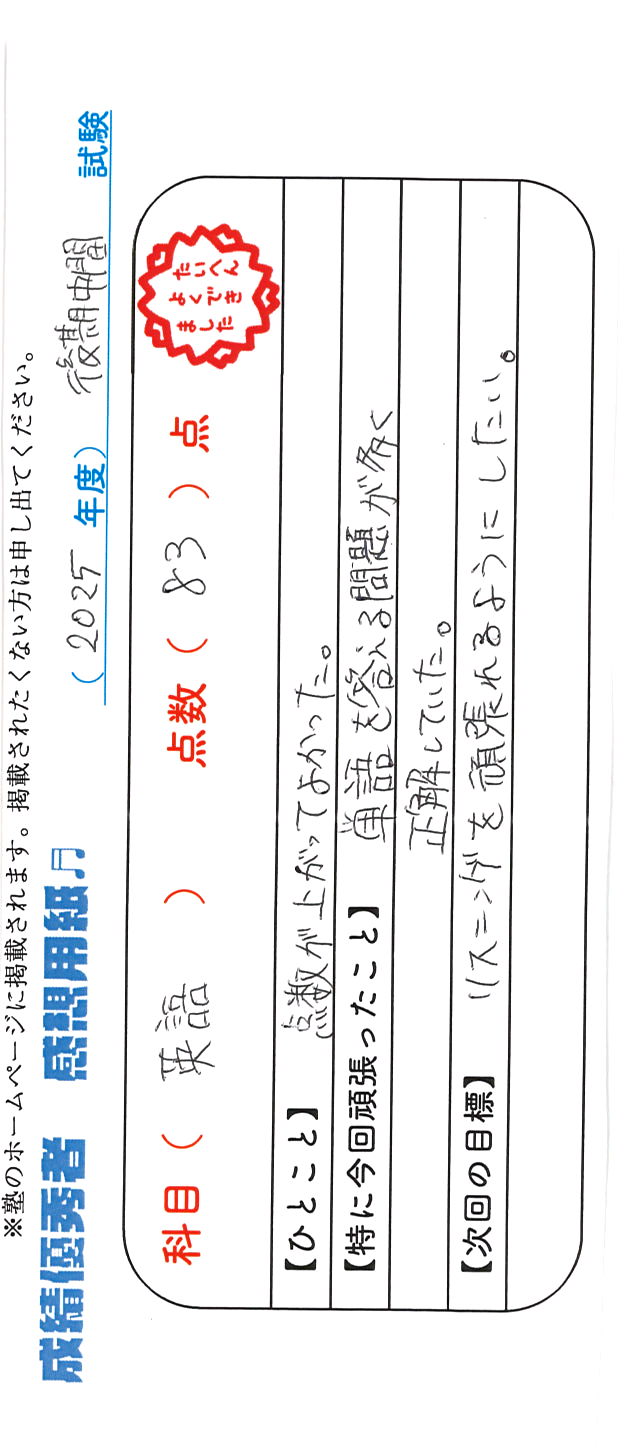 ※塾のホームページに掲載されます。掲載されたくない方は申し出てください。
成績優秀者 感想用紙♬ (2025年度) 後期中間 試験
科目(英語) 点数(83)点
たいへん
よくでき
ました
【ひとこと】 点数が上がってよかった。
【特に今回頑張ったこと】 単語を答える問題が多く
正解していた。
【次回の目標】 リスニングを頑張れるようにしたい。